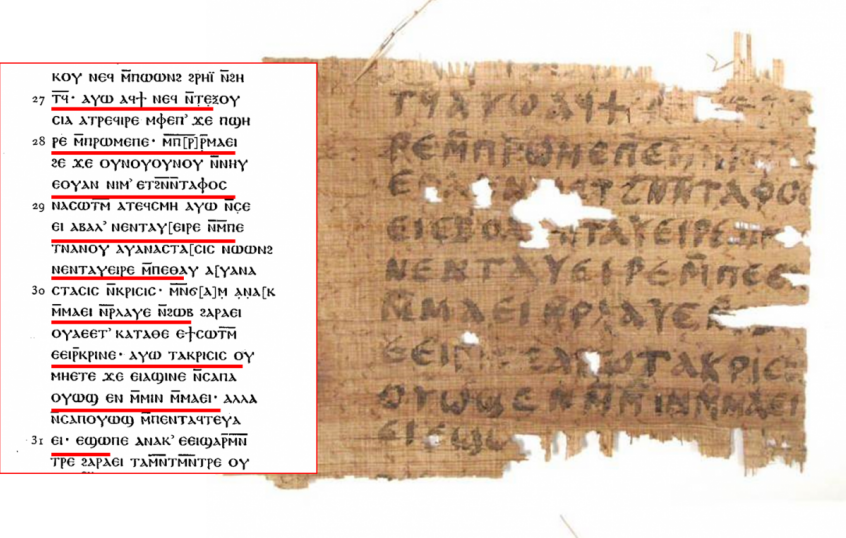 ⲕⲟⲩ ⲛⲉϥ ⲙ̅ⲡⲱⲱⲛϩ ϩⲣⲏⲓ̈ ⲛ̅ϩⲏ
27 ⲧ̅ϥ̅· ⲁⲩⲱ ⲁϥϯ ⲛⲉϥ ⲛ̅ⲧⲉⲝⲟⲩ
ⲥⲓⲁ ⲁⲧⲣⲉϥⲓⲣⲉ ⲙⲫⲉⲡ' ϫⲉ ⲡϣⲏ
28 ⲣⲉ ⲙ̅ⲡⲣⲱⲙⲉⲡⲉ· ⲙ̅ⲡ̅[ⲣ̅]ⲣ̅ⲙⲁⲉⲓ
ϩⲉ ϫⲉ ⲟⲩⲛⲟⲩⲟⲩⲛⲟⲩ ⲛ̅ⲛⲏⲩ
ⲉⲟⲩⲁⲛ ⲛⲓⲙ' ⲉⲧϩ̅ⲛ̅ⲛ̅ⲧⲁⲫⲟⲥ
29 ⲛⲁⲥⲱⲧ̅ⲙ̅ ⲁⲧⲉϥⲥⲙⲏ ⲁⲩⲱ ⲛ̅ⲥⲉ
ⲉⲓ ⲁⲃⲁⲗ' ⲛⲉⲛⲧⲁⲩ[ⲉⲓⲣⲉ ⲛ̅ⲙ̅ⲡⲉ
ⲧⲛⲁⲛⲟⲩ ⲁⲩⲁⲛⲁⲥⲧⲁ[ⲥⲓⲥ ⲛⲱⲱⲛϩ
ⲛⲉⲛⲧⲁⲩⲉⲓⲣⲉ ⲙ̅ⲡⲉⲑⲁⲩ ⲁ[ⲩⲁⲛⲁ
30 ⲥⲧⲁⲥⲓⲥ ⲛ̅ⲕⲣⲓⲥⲓⲥ· ⲙ̅ⲛ̅ϭ[ⲁ]ⲙ ⲁ̣ⲛ̣ⲁ[ⲕ
ⲙ̅ⲙⲁⲉⲓ ⲛ̅ⲣ̅ⲗⲁⲩⲉ ⲛ̅ϩⲱⲃ ϩⲁⲣⲁⲉⲓ
ⲟⲩⲁⲉⲉⲧ' ⲕⲁⲧⲁⲑⲉ ⲉϯⲥⲱⲧ̅ⲙ̅
ⲉⲉⲓⲣ̅ⲕⲣⲓⲛⲉ· ⲁⲩⲱ ⲧⲁⲕⲣⲓⲥⲓⲥ ⲟⲩ
ⲙⲏⲉⲧⲉ ϫⲉ ⲉⲓⲁϣⲓⲛⲉ ⲛ̅ⲥⲁⲡⲁ
ⲟⲩⲱϣ ⲉⲛ ⲙ̅ⲙⲓⲛ ⲙ̅ⲙⲁⲉⲓ· ⲁⲗⲗⲁ
ⲛ̅ⲥⲁⲡⲟⲩⲱϣ ⲙ̅ⲡⲉⲛⲧⲁϥⲧⲉⲩⲁ
31 ⲉⲓ· ⲉϣⲱⲡⲉ ⲁⲛⲁⲕ' ⲉⲉⲓϣⲁⲣ̅ⲙ̅ⲛ̅
ⲧⲣⲉ ϩⲁⲣⲁⲉⲓ ⲧⲁⲙ̅ⲛ̅ⲧⲙ̅ⲛ̅ⲧⲣⲉ ⲟⲩ
ⲧϥⲁⲩⲱⲁϥϯ
ⲣⲉⲙ̅ⲡⲣⲱⲙⲉⲡⲉ
ⲧϩ̅ⲛ̅ⲛ̅ⲧⲁⲫⲟⲥ
ⲉⲓ ⲛⲧⲁⲩⲉⲓⲣⲉ
ⲛⲉⲛⲧⲁⲩⲉⲓⲣⲉⲙ̅ⲡⲉ
ⲙ̅ⲙⲁⲉⲓⲛⲣⲗⲁⲩⲉ
ⲉⲉⲓ ⲧⲁⲕⲣⲓⲥ
ⲟⲩⲱϣⲉⲛⲙ̅ⲙⲓⲛⲙ̅ⲙⲁⲉⲓ
ⲉⲓⲉϣⲱ